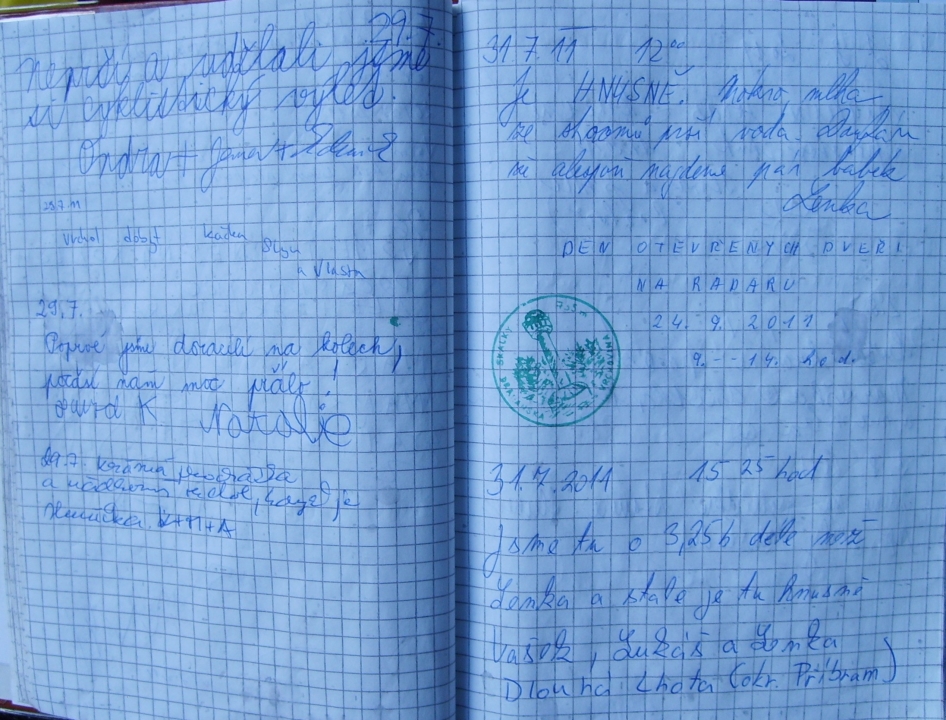 29.7.
Neprší a udělali jsme
si cyklistický výlet.
Ondra + Jana + Zdeněk
29.7.11
Vrchol dobyt Kačka
Olga
a Vlasta
29.7.
Poprvé jsme dorazili na kolech,
počasí nám moc přálo!
David K Natálie
29.7. Krásná
a nádherné
K+M+A
31.7.11 12 00
Je HNUSNĚ. Mokro, mlha
ze stromů prší voda. Doufám
že alespoň najdeme pár babek
Lenka
DEN OTEVŘENÝCH DVEŘÍ
NA RADARU
24. 9. 2011
9. - - 14. hod.
31.7.2011 15 25 hod
Jsme tu o 3,25h déle než
Lenka a stále je tu hnusně
Vašek, Lukáš a Lenka
Dlouhá Lhota (okr. Příbram)